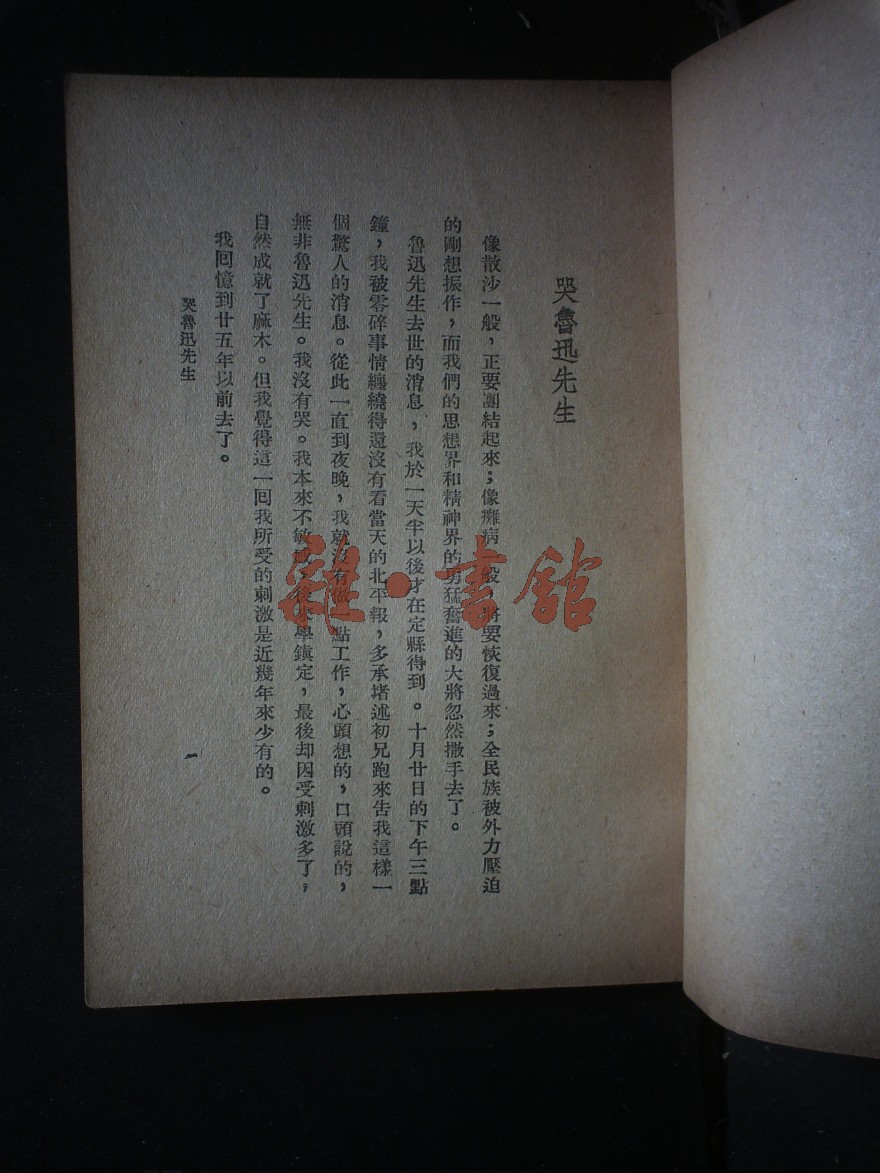 哭魯迅先生
像散沙一般，正要團結起來；像癱病一般，將要恢復過來；全民族被外力壓迫
的剛想振作，而我們的思想界和精神界的勇猛奮進的大將忽然撒手去了。
魯迅先生去世的消息，我於一天半以後才在定縣得到。十月廿日的下午三點
鐘，我被零碎事情纏繞得還沒有看當天的北平報，多承堵述初兄跑來告我這樣一
個驚人的消息。從此一直到夜晚，我就沒有做一點工作，心頭想的，口頭說的，
無非魯迅先生。我沒有哭。我本來不敏感，後來學鎮定，最後却因受刺激多了，
自然成就了麻木。但我覺得這一回我所受的刺激是近幾年來少有的。
我回憶到廿五年以前去了。
哭魯迅先生
一
雜·書館